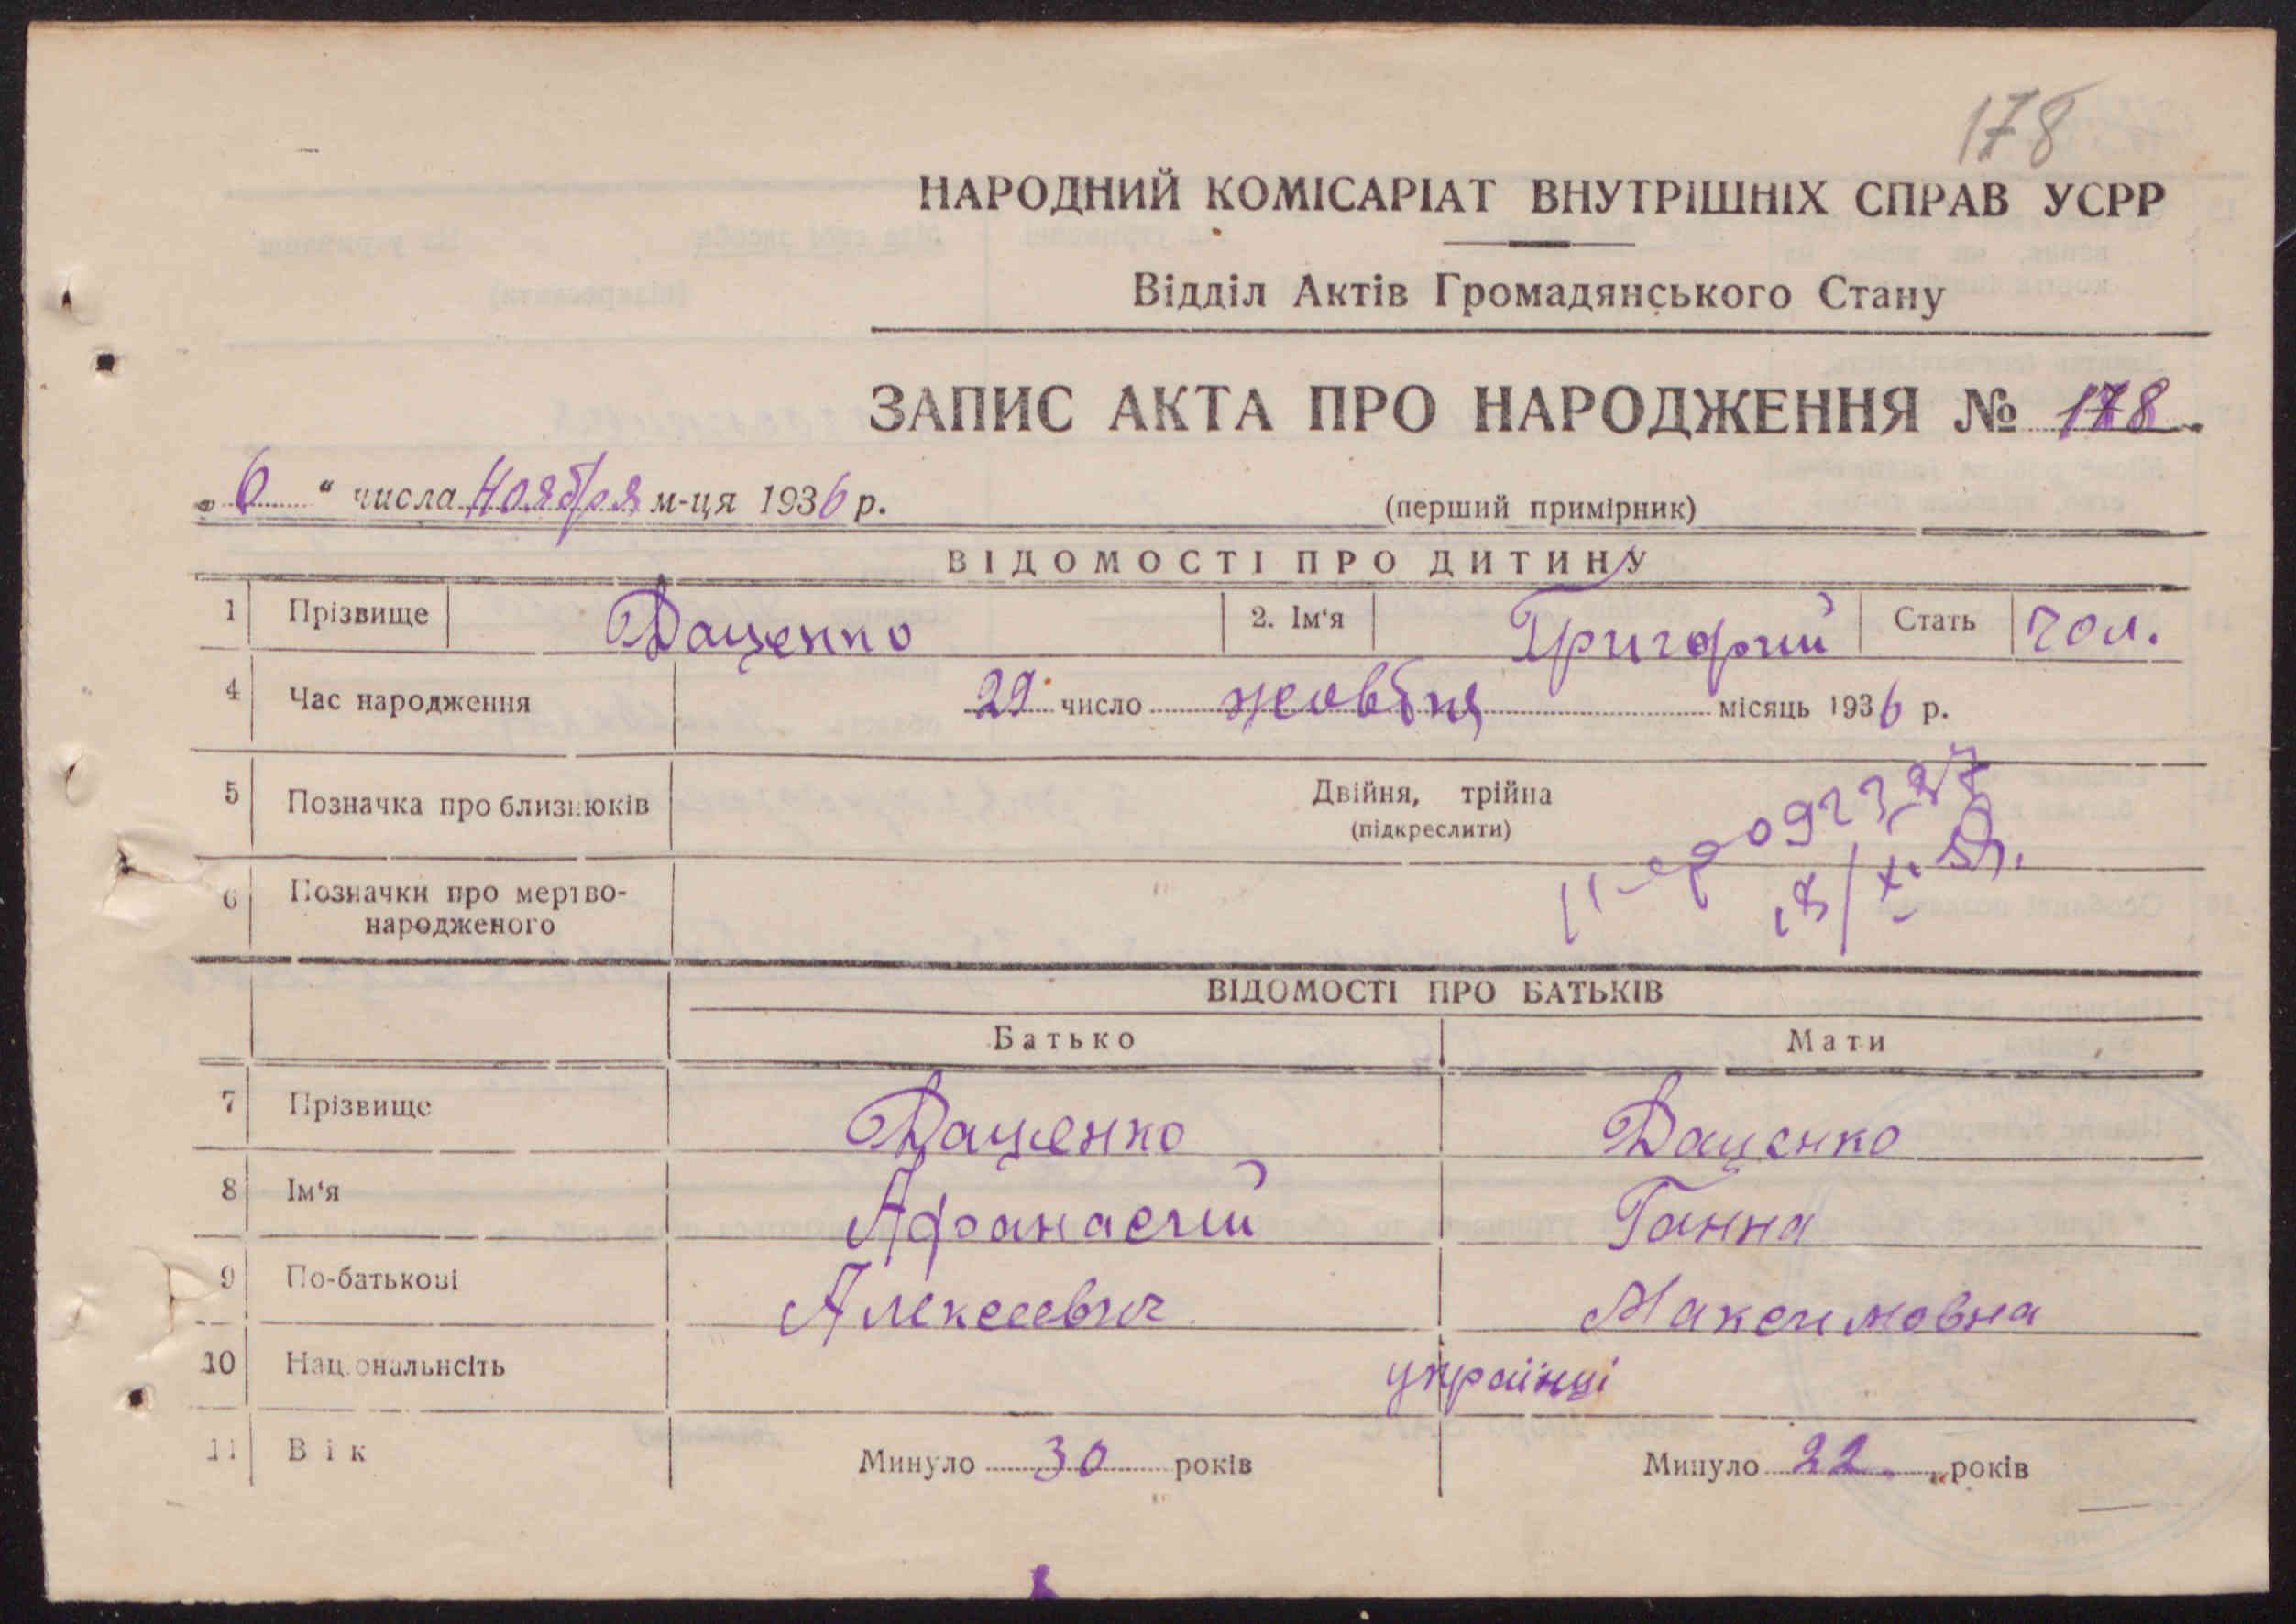 178
НАРОДНИЙ КОМІСАРІАТ ВНУТРІШНІХ СПРАВ УСРР
Відділ Актів Громадянського Стану
ЗАПИС АКТА ПРО НАРОДЖЕННЯ № 178
„ 6 “ числа Ноября м-ця 1936 р.
(перший примірник)
ВІДОМОСТІ ПРО ДИТИНУ
1 Прізвище Даценко 2. Ім‘я Григорий Стать чол.
4 Час народження 29 число жовтня місяць 1936 р.
5 Позначка про близнюків Двійня, трійна
(підкреслити)
092327
18/X
6 Позначки про мертво-
народженого
ВІДОМОСТІ ПРО БАТЬКІВ
Батько Мати
7 Прізвище Даценко Даценко
8 Ім‘я Афанасий Ганна
9 По-батькові Алексеевич Максимовна
10 Національнсіть українці
11 Вік Минуло 30 років Минуло 22 років